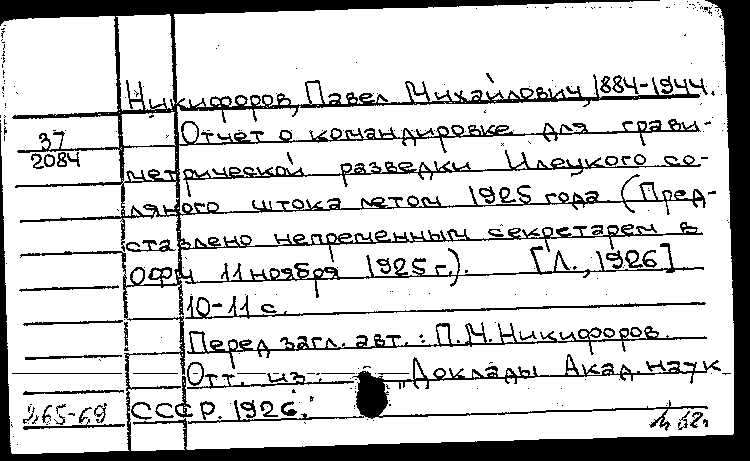 Никифоров, Павел Михайлович, 1884-1944.
37
2084
Отчет о командировке для грави-
метрической разведки Илецкого со-
ляного штока летом 1925 года (Пред-
ставлено непременным секретарем в
ОФМ 11 ноября 1925 г.). [Л., 1926]
10-11 с.
Перед загл. авт.: П.М. Никифоров.
Отт. из: „Доклады Акад. наук
265-69 СССР. 1926.